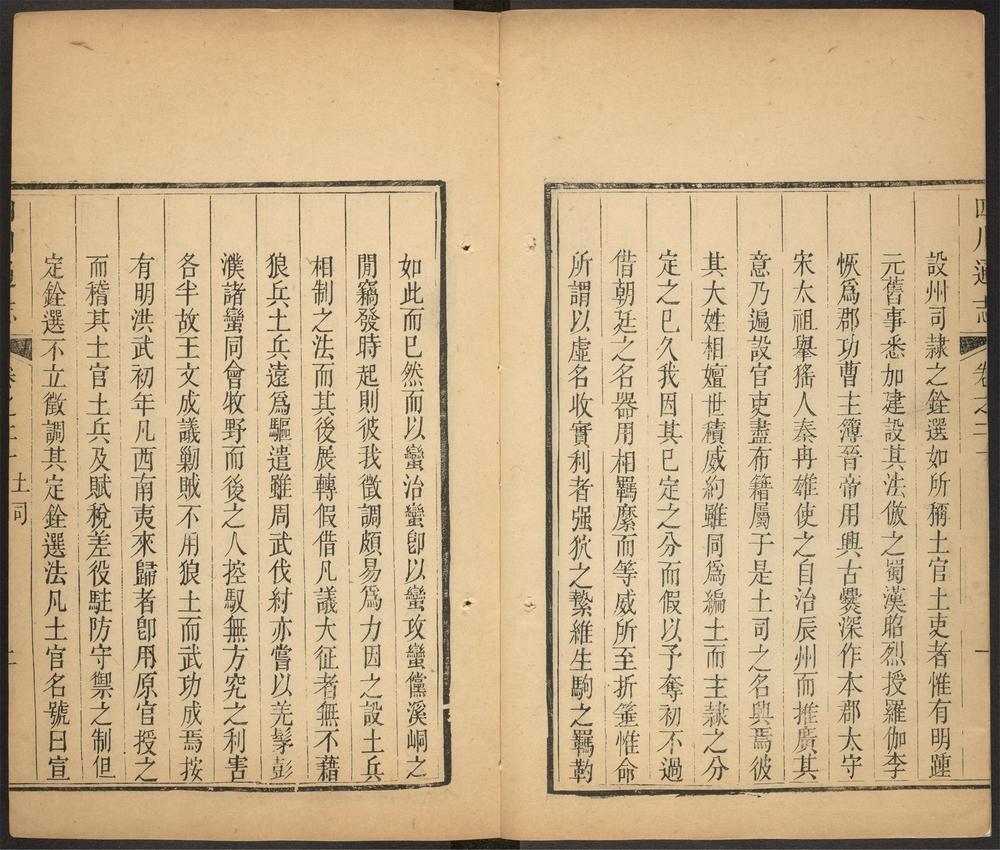 四川通志 卷之二十 一
設州司隷之銓選如所稱土官土吏者惟有明踵
元舊事悉加建設其法倣之蜀漢昭烈授羅伽李
恢爲郡功曹主簿晉帝用興古爨深作本郡太守
宋太祖舉猺人秦冉雄使之自治辰州而推廣其
意乃遍設官吏盡布籍屬于是土司之名興焉彼
其大姓相嬗世積威約雖同爲編土而主隷之分
定之已久我因其已定之分而假以予奪初不過
借朝廷之名器用相羈縻而等威所至折箠惟命
所謂以虛名收實利者强狁之縶維生駒之羈靮
如此而已然而以蠻治蠻卽以蠻攻蠻儻溪峒之
閒竊發時起則彼我徵調頗易爲力因之設土兵
相制之法而其後展轉假借凡議大征者無不藉
狼兵土兵遠爲驅遣雖周武伐紂亦嘗以羌髳彭
濮諸蠻同會牧野而後之人控馭無方究之利害
各半故王文成議勦賊不用狼土而武功成焉按
有明洪武初年凡西南夷來歸者卽用原官授之
而稽其土官土兵及賦稅差役駐防守禦之制但
定銓選不立徵調其定銓選法凡土官名號曰宣
土司